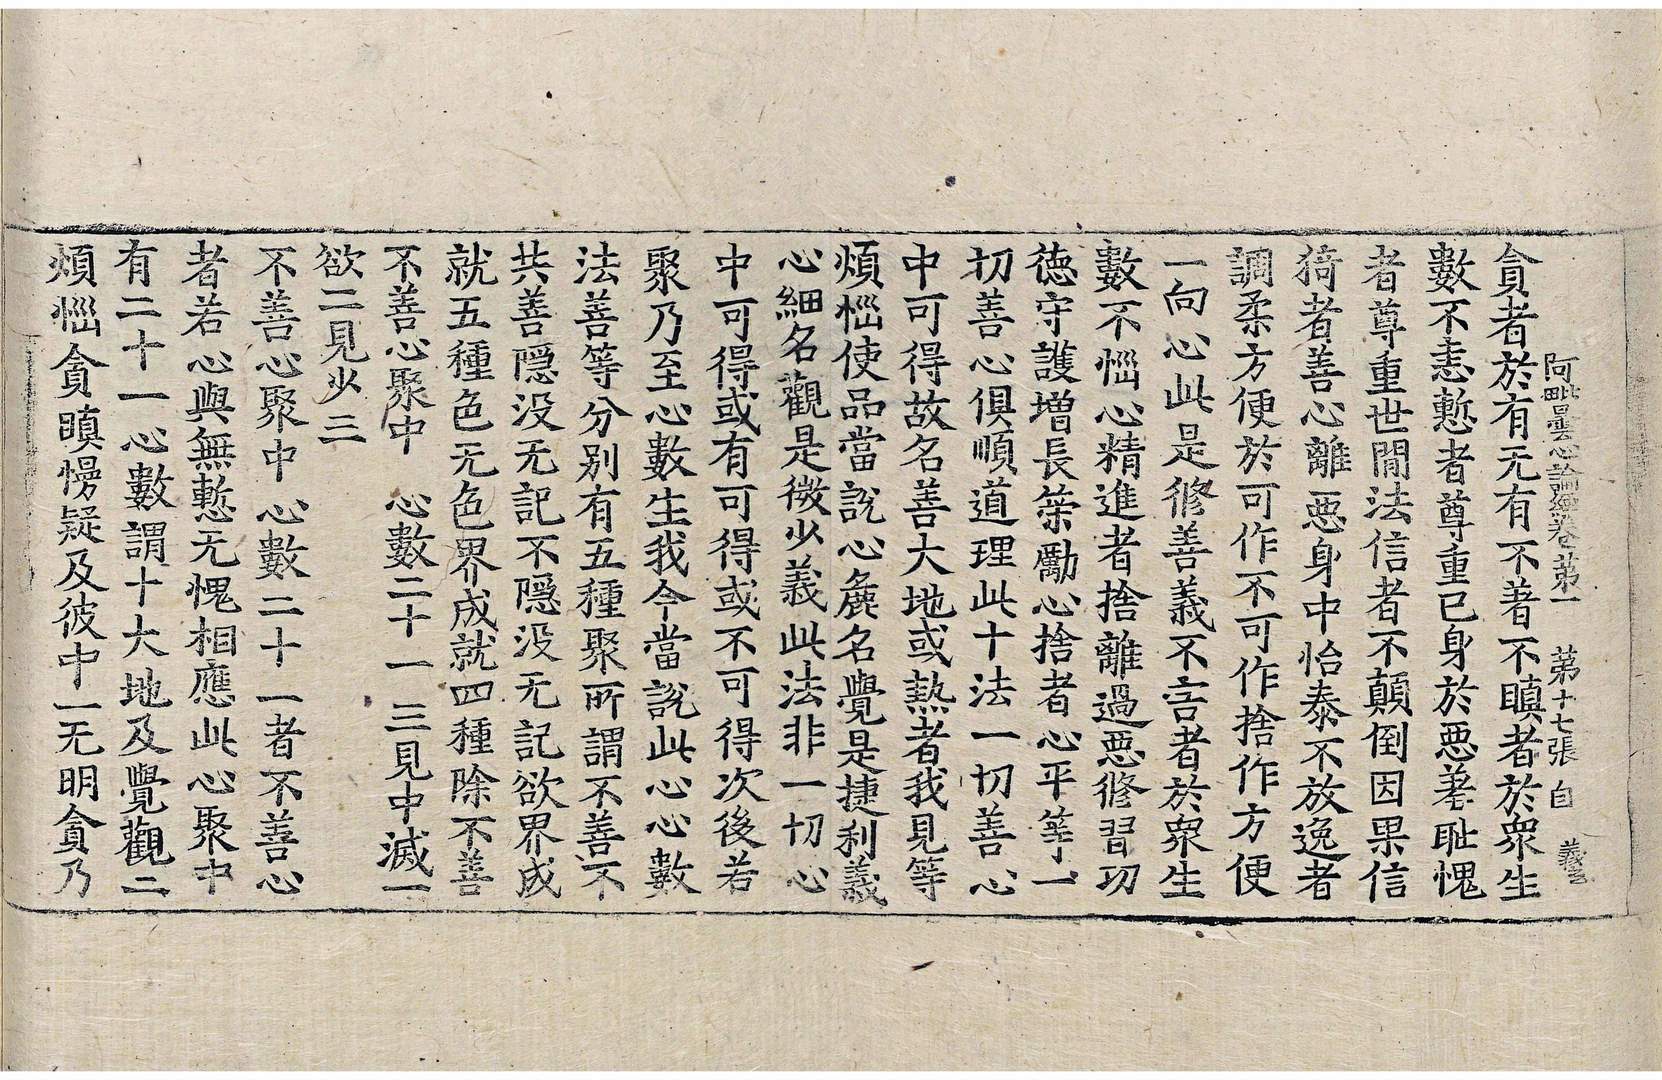 阿毗曇心論經卷第一　第十七張　自　義
貪者於有无有不著不瞋者於衆生
數不恚慙者尊重己身於惡羞耻愧
者尊重世間法信者不顛倒因果信
猗者善心離惡身中怡泰不放逸者
調柔方便於可作不可作捨作方便
一向心此是修善義不害者於衆生
數不惱心精進者捨離過惡修習功
德守護增長策勵心捨者心平等一
切善心俱順道理此十法一切善心
中可得故名善大地或熱者我見等
煩惱使品當說心麁名覺是捷利義
心細名觀是微少義此法非一切心
中可得或有可得或不可得次後若
聚乃至心數生我今當說此心心數
法善等分別有五種聚所謂不善不
共善隱没无記不隱没无記欲界成
就五種色无色界成就四種除不善
不善心聚中　心數二十一三見中減一
欲二見少三
不善心聚中心數二十一者不善心
者若心與無慙无愧相應此心聚中
有二十一心數謂十大地及覺觀二
煩惱貪瞋慢疑及彼中一无明貪乃